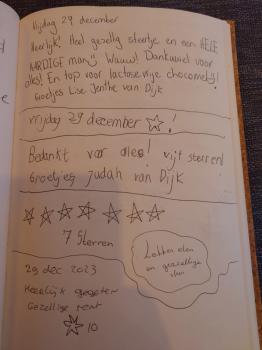 Vrijdag 29 december
Heerlijk! Heel gezellig sfeertje en een HELE
AARDIGE man:) Wauw! Dankuwel voor
alles! En top voor lactosevrije chocomelk!
Groetjes Lise Jenthe van Dijk
vrijdag 29 december !
Bedankt voor alles! vijf sterren!
Groetjes Judah van Dijk
7 Sterren
Lekker eten
en gezellige
sfeer
29 dec 2023
Heerlijk gegeten
Gezellige tent
10